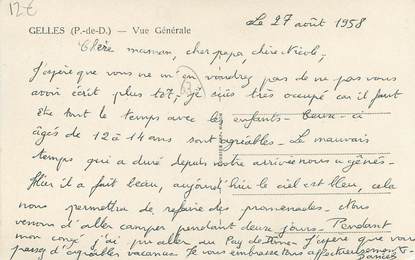 12€
Le 27 août 1958
GELLES (P.-de-D.) — Vue Générale
Chère maman, cher papa, chère Nicole,
J'espère que vous ne m'en voudrez pas de ne pas vous
avoir écrit plus tôt, je suis très occupé car il faut
être tout le temps avec les enfants. Ceux-ci
âgés de 12 à 14 ans sont agréables. Le mauvais
temps qui a duré depuis notre arrivée nous a gênés.
Hier il a fait beau, aujourd'hui le ciel est bleu, cela
nous permettra de faire des promenades. Nous
venons d'aller camper pendant deux jours. Pendant
mon congé j'ai pu aller au Puy de Dôme. J'espère que vous
passez d'agréables vacances. Je vous embrasse tous affectueusement